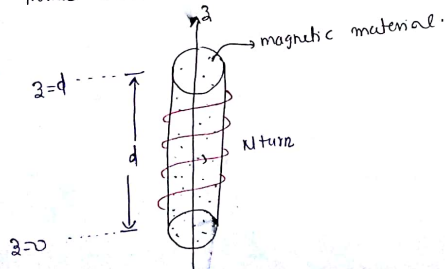 z
magnetic material.
z=d
d
N turn
z=0